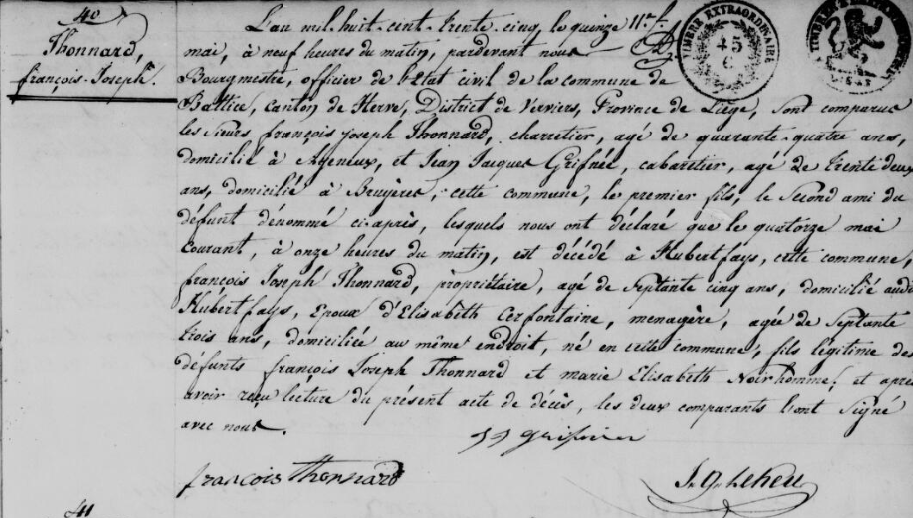 40
Thonnard,
françois-Joseph.
L'an mil-huit-cent-trente-cinq, le quinze
mai, à neuf heures du matin, pardevant nous
Bourgmestre, officier de l'Etat civil de la commune de
Battice, canton de Herve, District de Verviers, Province de Liège, sont comparus
les Sieurs françois joseph Thonnard, charretier, agé de quarante-quatre ans,
domicilié à Ayeneux, et Jean Jacques Grifnée, cabaretier, agé de trente deux
ans, domicilié à Bruyères, cette commune, le premier fils, le Second ami du
défunt dénommé ci-après, lesquels nous ont déclaré que le quatorze mai
courant, à onze heures du matin, est décédé à Hubertfays, cette commune,
françois Joseph Thonnard, propriétaire, agé de Septante cinq ans, domicilié audit
Hubertfays, Epoux d'Elisabeth Cerfontaine, menagère, agée de Septante
trois ans, domiciliée au même endroit, né en cette commune, fils légitime des
défunts françois Joseph Thonnard et marie Elisabeth Noirhomme, et après
avoir reçu lecture du présent acte de décès, les deux comparants l'ont Signé
avec nous.
françois Thonnard
41
TIMBRE EXTRAORDINAIRE
45